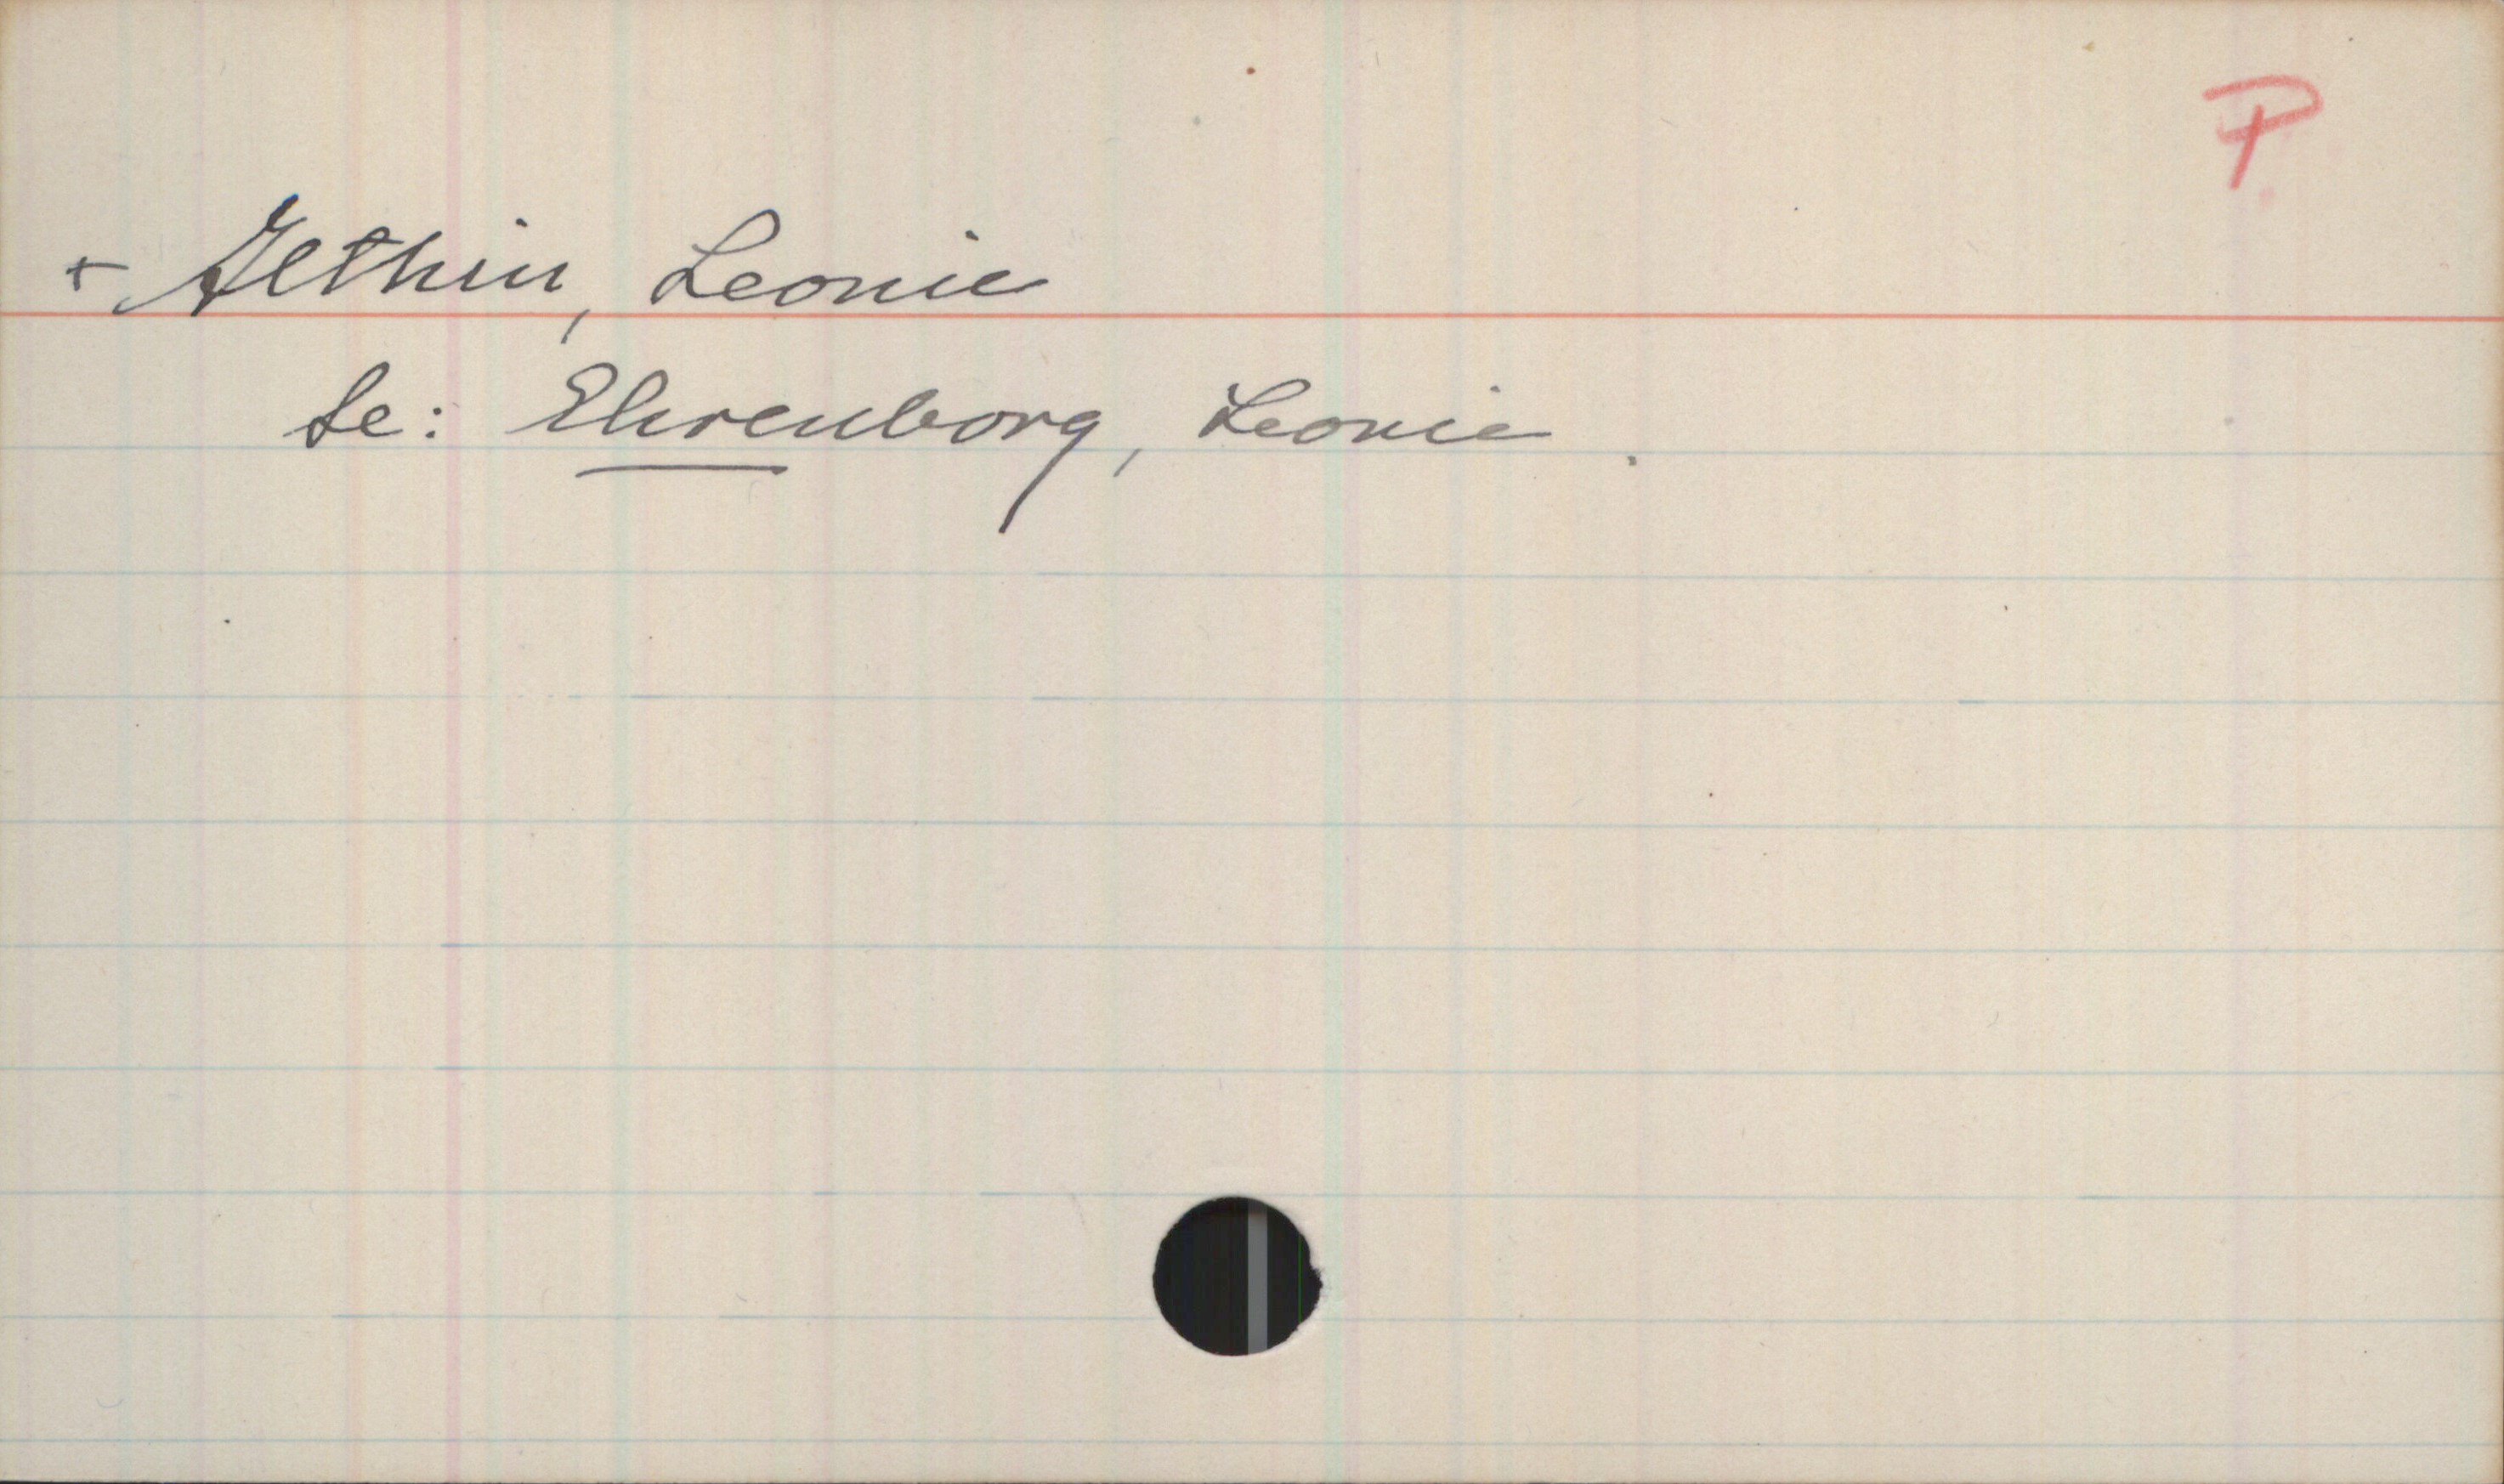 P
+ Gethin, Leonie
Se: Ehrenborg, Leonie.